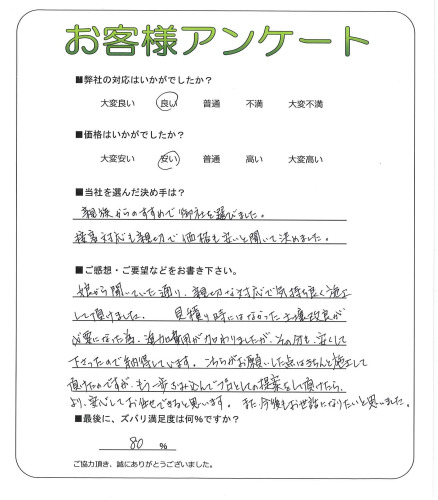 お客様アンケート
■弊社の対応はいかがでしたか？
大変良い 良い 普通 不満 大変不満
■価格はいかがでしたか？
大変安い 安い 普通 高い 大変高い
■当社を選んだ決め手は？
親族からのすすめで御社を選びました。
接客対応も親切で価格も安いと聞いて決めました。
■ご感想・ご要望などをお書き下さい。
娘から聞いていた通り、親切な対応で気持ち良く施工
して頂けました。 見積り時にはなかった土壌改良が
必要になった為、追加費用が加わりましたが、その分も安くして
下さったので納得しています。こちらがお願いした点はきちんと施工して
頂けたのですが、もう一歩ふみ込んでプロとしての提案をして頂けたら、
より、安心してお任せできると思います。また今後もお世話になりたいと思いました。
■最後に、ズバリ満足度は何%ですか？
80 %
ご協力頂き、誠にありがとうございました。